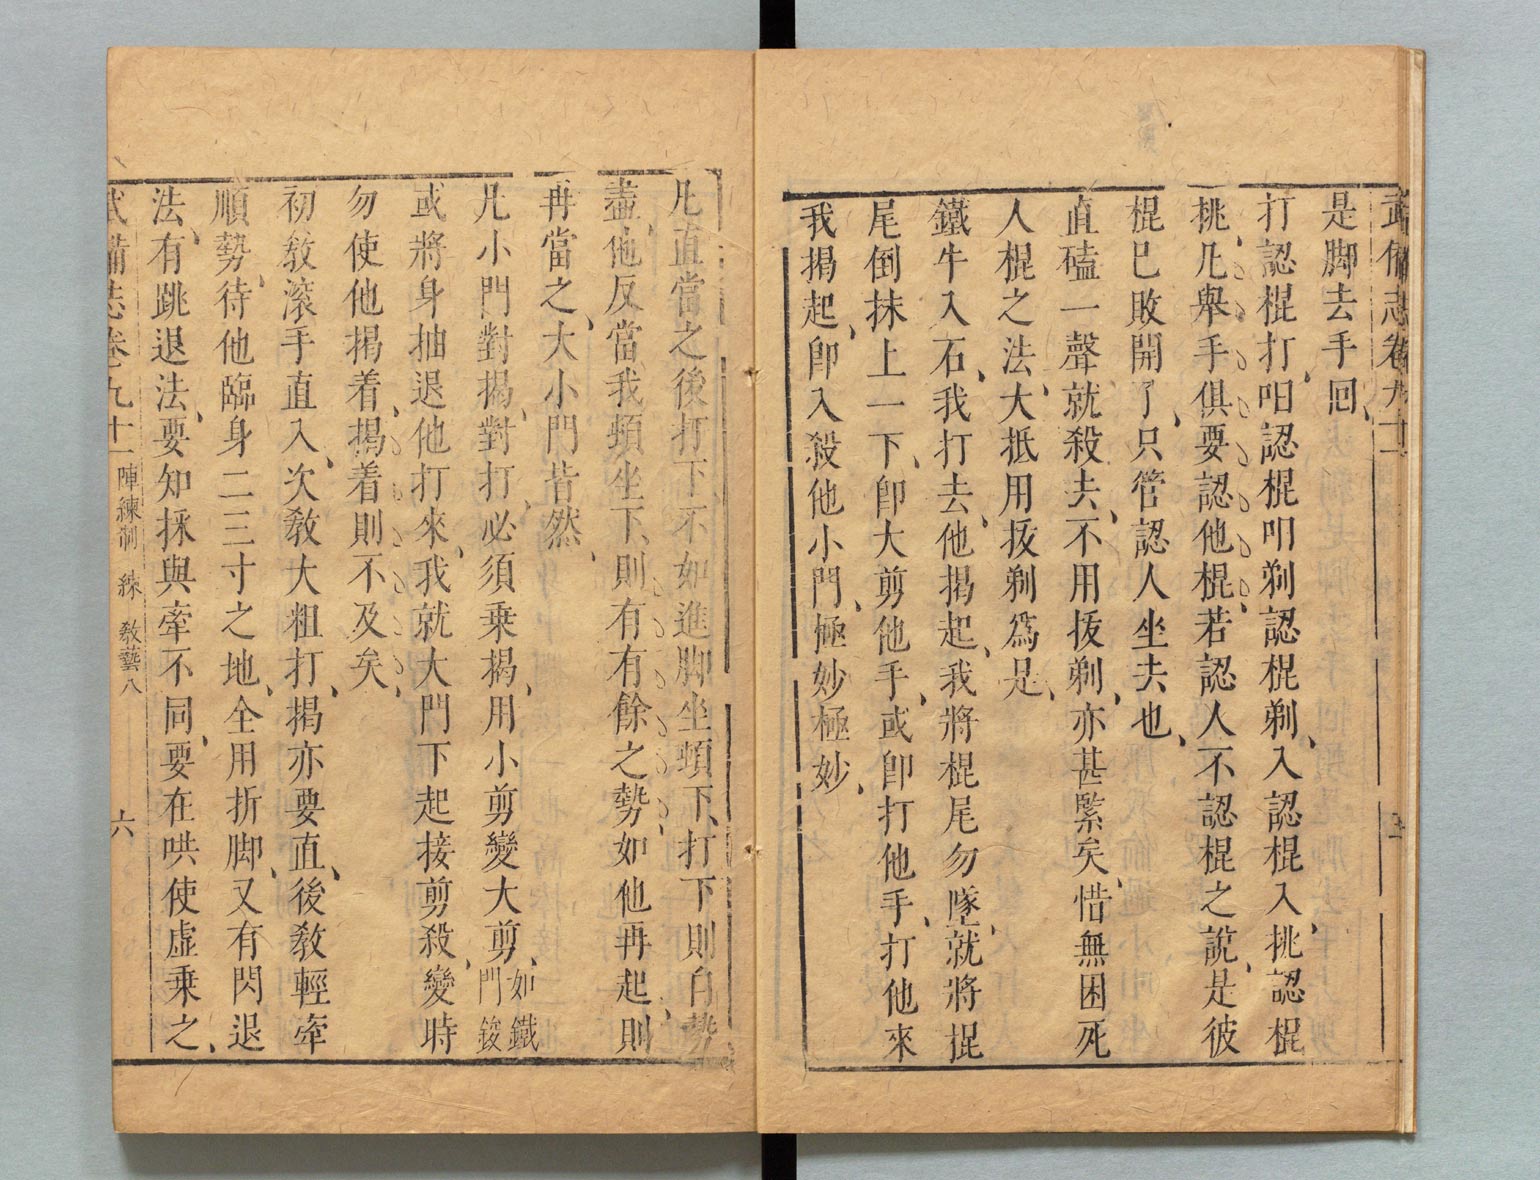 武備志卷九十一
是脚去手囘
打認棍打𠰻認棍叩剃認棍剃入認棍入挑認棍
挑凡舉手俱要認他棍若認人不認棍之說是彼
棍已敗開了只管認人坐去也
直磕一聲就殺去不用抜剃亦甚緊矣惜無困死
人棍之法大抵用抜剃爲是
鐵牛入石我打去他揭起我將棍尾勿墜就將棍
尾倒抹上一下卽大剪他手或卽打他手打他來
我揭起卽入殺他小門極妙極妙
凡直當之後打下不如進脚坐頓下打下則自勢
盡他反當我頓坐下則有有餘之勢如他再起則
再當之大小門皆然
凡小門對揭對打必須乗揭用小剪變大剪如鐵門鋑
或將身抽退他打來我就大門下起接剪殺變時
勿使他揭着揭着則不及矣
初敎滚手直入次敎大粗打揭亦要直後敎輕牽
順勢待他臨身二三寸之地全用折脚又有閃退
法有跳退法要知採與牽不同要在哄使虛乗之
武備志卷九十一 陣練制 練 敎藝八 六